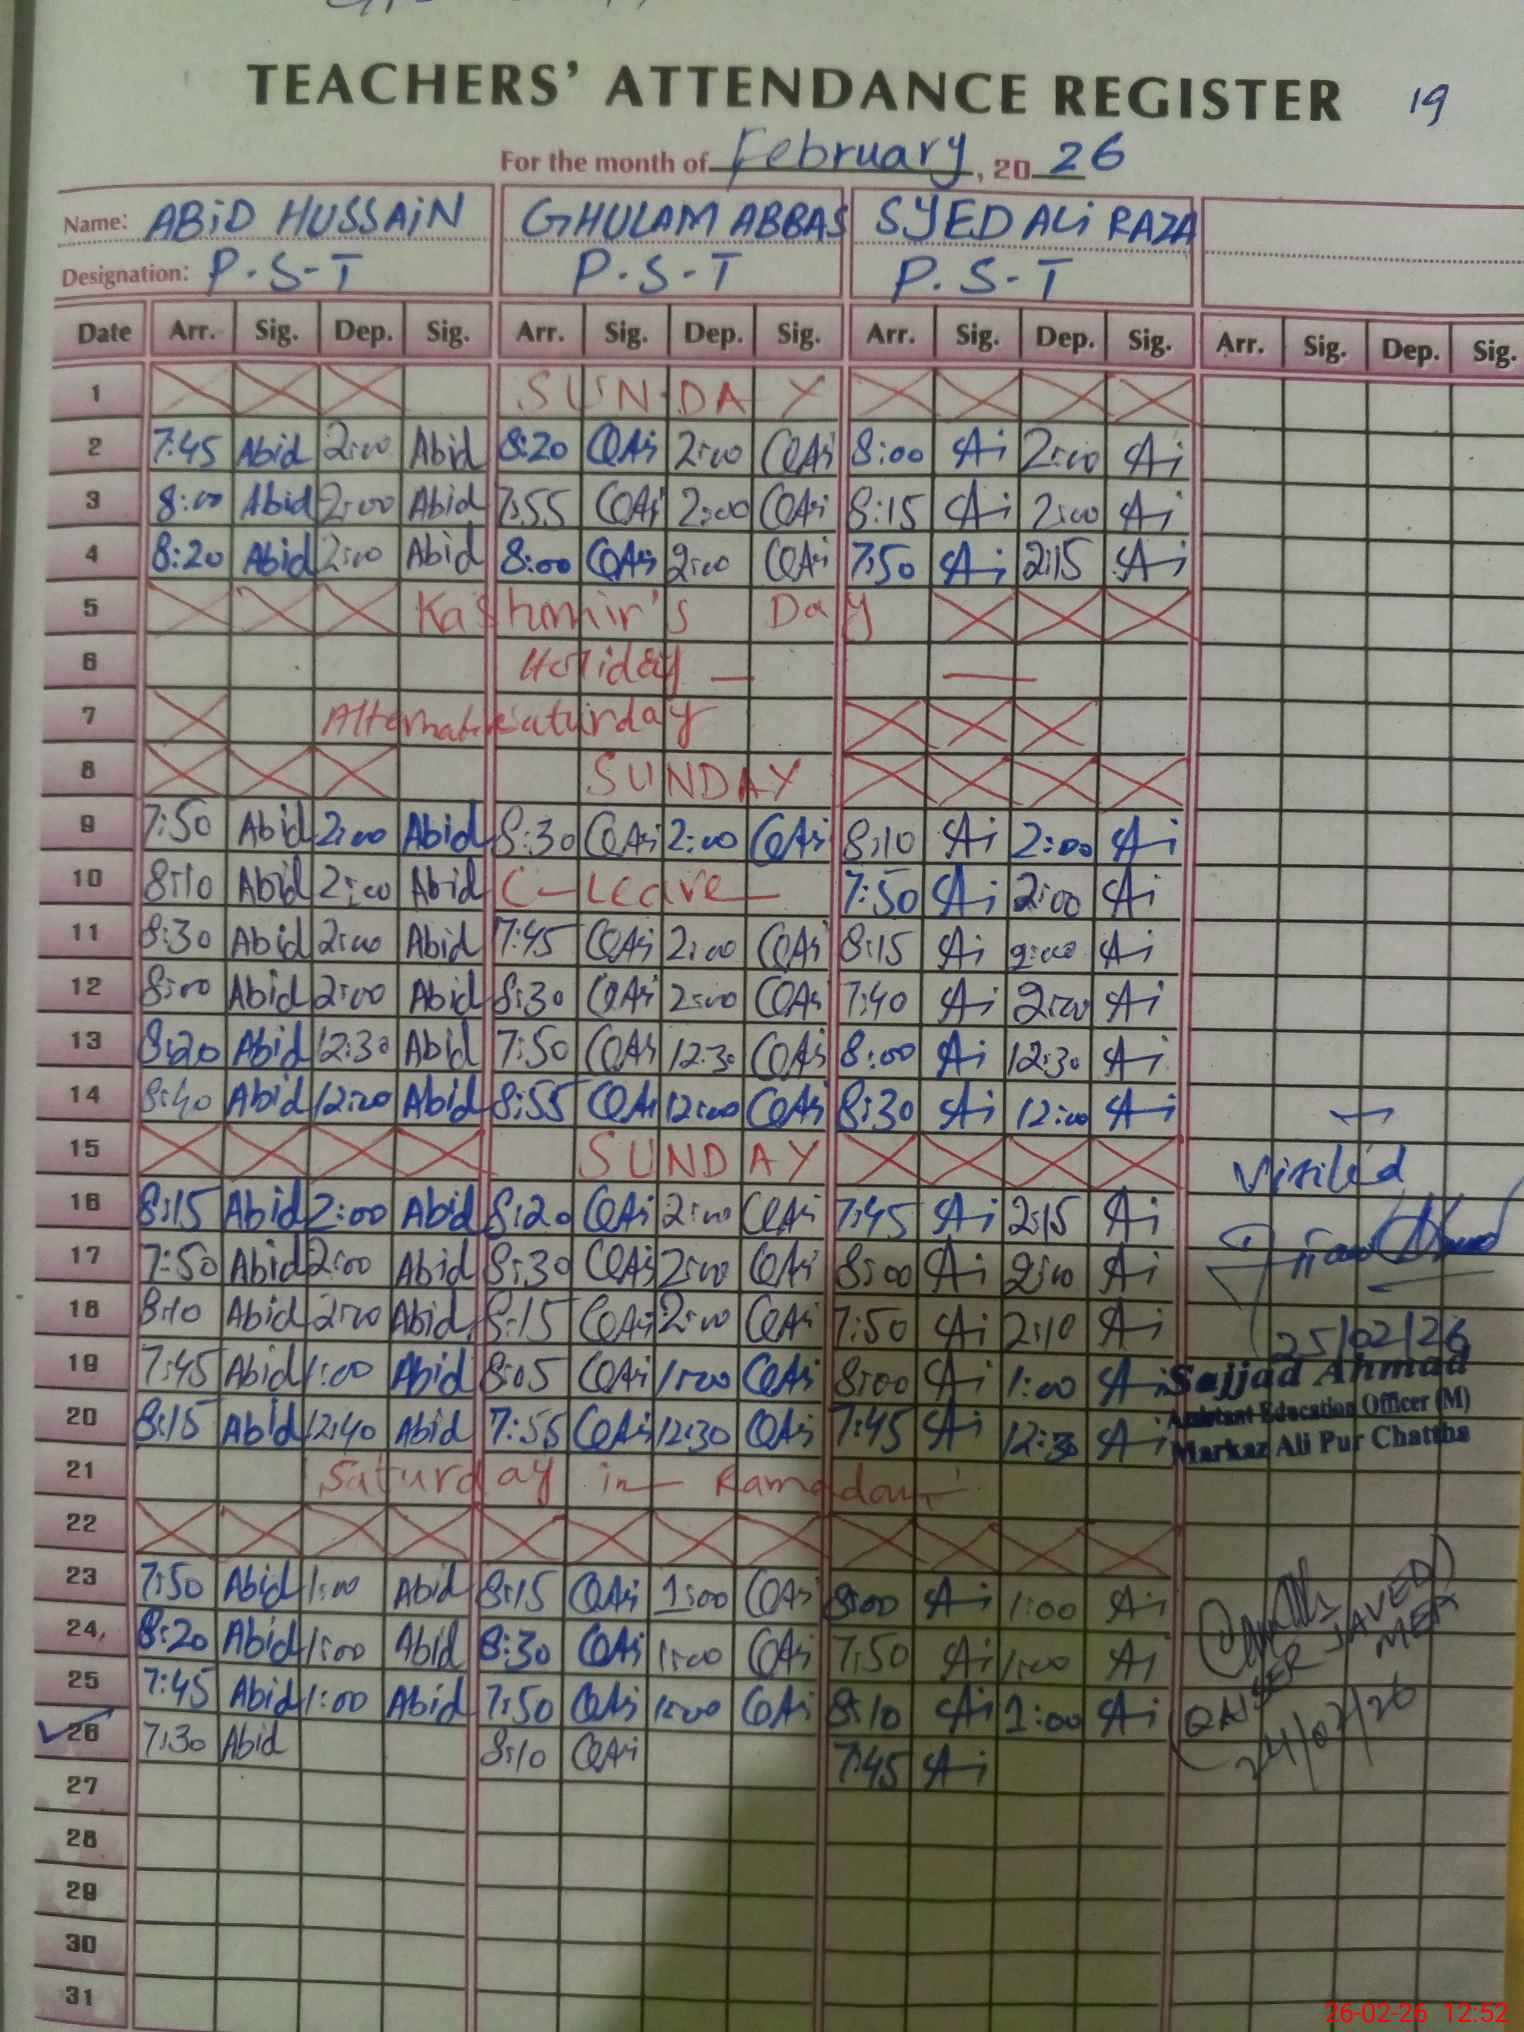 TEACHERS' ATTENDANCE REGISTER 19
For the month of February, 20 26
Name: ABiD HUSSAiN GHULAM ABBAS SYED ALi RAZA
Designation: P.S-T P.S-T P.S-T
Date Arr. Sig. Dep. Sig. Arr. Sig. Dep. Sig. Arr. Sig. Dep. Sig. Arr. Sig. Dep. Sig.
1 SUNDAY
2 7:45 Abid 2:00 Abid 8:20 2:00 8:00 2:00
3 8:00 Abid 2:00 Abid 7:55 2:00 8:15 2:00
4 8:20 Abid 2:00 Abid 8:00 2:00 7:50 2:15
5 Kashmir's Day
6 Holiday
7 Alternate Saturday
8 SUNDAY
9 7:50 Abid 2:00 Abid 8:30 2:00 8:10 2:00
10 8:10 Abid 2:00 Abid C-Leave 7:50 2:00
11 8:30 Abid 2:00 Abid 7:45 2:00 8:15 2:00
12 8:00 Abid 2:00 Abid 8:30 2:00 7:40 2:00
13 8:20 Abid 12:30 Abid 7:50 12:30 8:00 12:30
14 8:40 Abid 12:00 Abid 8:55 12:00 8:30 12:00
15 SUNDAY
Visited
16 8:15 Abid 2:00 Abid 8:20 2:00 7:45 2:15
17 7:50 Abid 2:00 Abid 8:30 2:00 8:00 2:00
18 8:10 Abid 2:00 Abid 8:15 2:00 7:50 2:10
25/02/26
19 7:45 Abid 1:00 Abid 8:05 1:00 8:00 1:00
Sajjad Ahmad
20 8:15 Abid 12:40 Abid 7:55 12:30 7:45 12:30
Assistant Education Officer (M)
Markaz Ali Pur Chattha
21 Saturday in Ramadan
22
23 7:50 Abid 1:00 Abid 8:15 1:00 8:00 1:00
24 8:20 Abid 1:00 Abid 8:30 1:00 7:50 1:00
25 7:45 Abid 1:00 Abid 7:50 1:00 8:10 1:00
(QAISER JAVED)
MEA
24/02/26
26 7:30 Abid 8:10 7:45
27
28
29
30
31
26-02-26 12:52